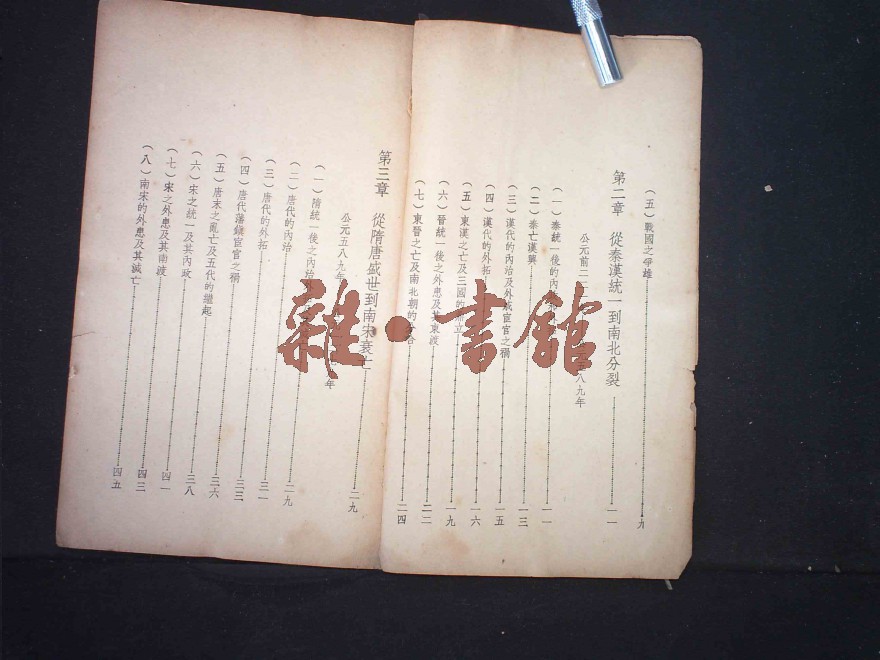 (五)戰國之爭雄 九
第二章 從秦漢統一到南北分裂 一一
公元前二 五八九年
(一)秦統一後的內 一一
(二)秦亡漢興 一三
(三)漢代的內治及外戚宦官之禍 一五
(四)漢代的外拓 一六
(五)東漢之亡及三國的鼎立 一九
(六)晉統一後之外患及其東渡 二二
(七)東晉之亡及南北朝的分合 二四
第三章 從隋唐盛世到南宋衰亡 二九
公元五八九年 年
(一)隋統一後之內治 二九
(二)唐代的內治
(三)唐代的外拓 三一
(四)唐代藩鎮宦官之禍 三三
(五)唐末之亂亡及五代的繼起 三六
(六)宋之統一及其內政 三八
(七)宋之外患及其南渡 四一
(八)南宋的外患及其滅亡 四三
四五
雜·書館